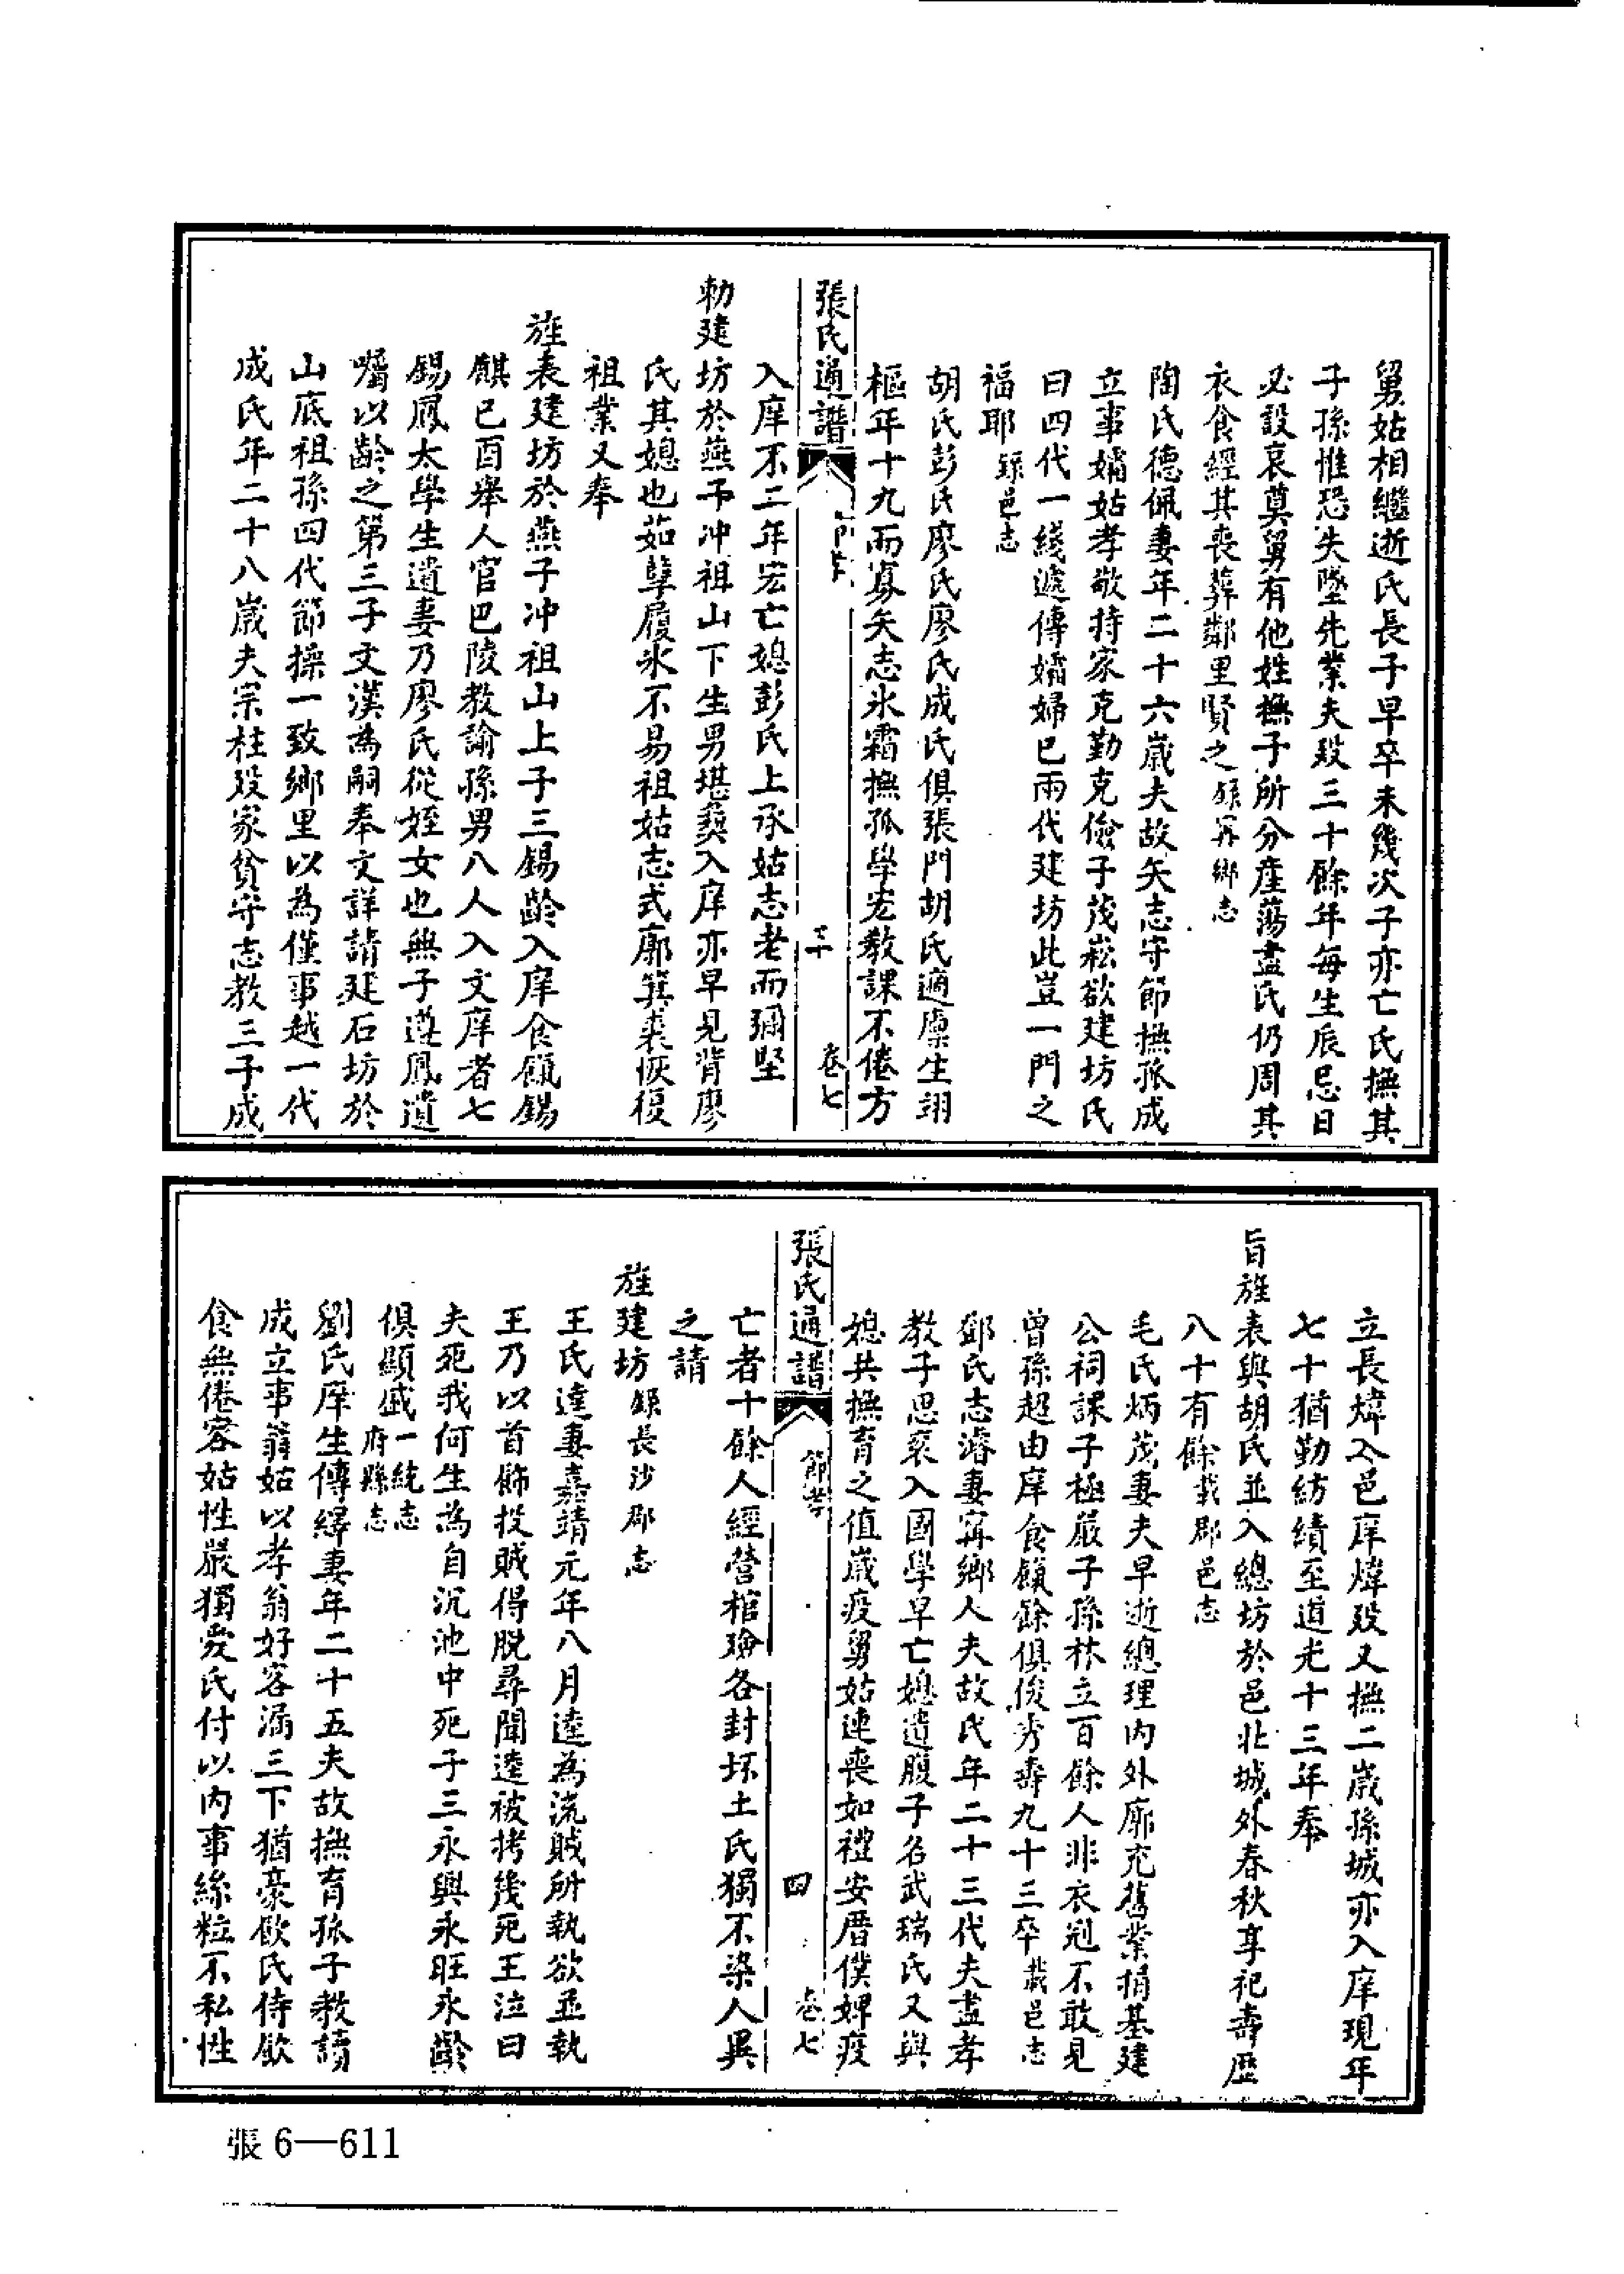 舅姑相繼逝氏長子早卒未幾次子亦亡氏撫其
子孫惟恐失墜先業夫歿三十餘年每生辰忌日
必設哀奠舅有他姓撫子所分産蕩盡氏仍周其
衣食經其喪葬鄰里賢之錄寧鄉志
陶氏德佩妻年二十六歲夫故矢志守節撫孫成
立事孀姑孝敬持家克勤克儉子茂崧欲建坊氏
曰四代一綫遞傳孀婦已兩代建坊此豈一門之
福耶錄邑志
胡氏彭氏廖氏廖氏成氏俱張門胡氏適廩生翊
樞年十九而寡矢志氷霜撫孤學宏教課不倦方
張氏通譜 節孝 卷七
入庠不二年宏亡媳彭氏上承姑志老而彌堅
勅建坊於燕子冲祖山下生男堪奬入庠亦早見背廖
氏其媳也茹孽履氷不易祖姑志式廓箕裘恢復
祖業又奉
旌表建坊於燕子冲祖山上子三錫齡入庠食餼錫
麒己酉舉人官巴陵教諭孫男八人入文庠者七
錫鳳太學生遺妻乃廖氏從姪女也無子遵鳳遺
囑以齡之第三子文漢為嗣奉文詳請建石坊於
山底祖孫四代節操一致鄉里以為僅事越一代
成氏年二十八歲夫宗柱歿家貧守志教三子成
立長煒入邑庠煒歿又撫二歲孫城亦入庠現年
七十猶勤紡績至道光十三年奉
旨旌表與胡氏並入總坊於邑北城外春秋享祀壽歷
八十有餘載郡邑志
毛氏炳茂妻夫早逝總理內外廓充舊業捐基建
公祠課子極嚴子孫林立百餘人非衣冠不敢見
曾孫超由庠食餼餘俱俊秀壽九十三卒載邑志
鄧氏志濬妻寧鄉人夫故氏年二十三代夫盡孝
教子思裘入國學早亡媳遺腹子名武瑞氏又與
媳共撫育之值歲疫舅姑連喪如禮安厝僕婢疫
張氏通譜 節孝 四 卷七
亡者十餘人經營棺殮各封坏土氏獨不染人異
之請
旌建坊錄長沙郡志
王氏逵妻嘉靖元年八月逵為流賊所執欲並執
王乃以首飾投賊得脫尋聞逵被拷幾死王泣曰
夫死我何生為自沉池中死子三永興永旺永齡
俱顯戚一統志府縣志
劉氏庠生傳繹妻年二十五夫故撫育孤子教讀
成立事翁姑以孝翁好客漏三下猶豪飲氏侍飲
食無倦容姑性嚴獨愛氏付以內事絲粒不私性
張6—611